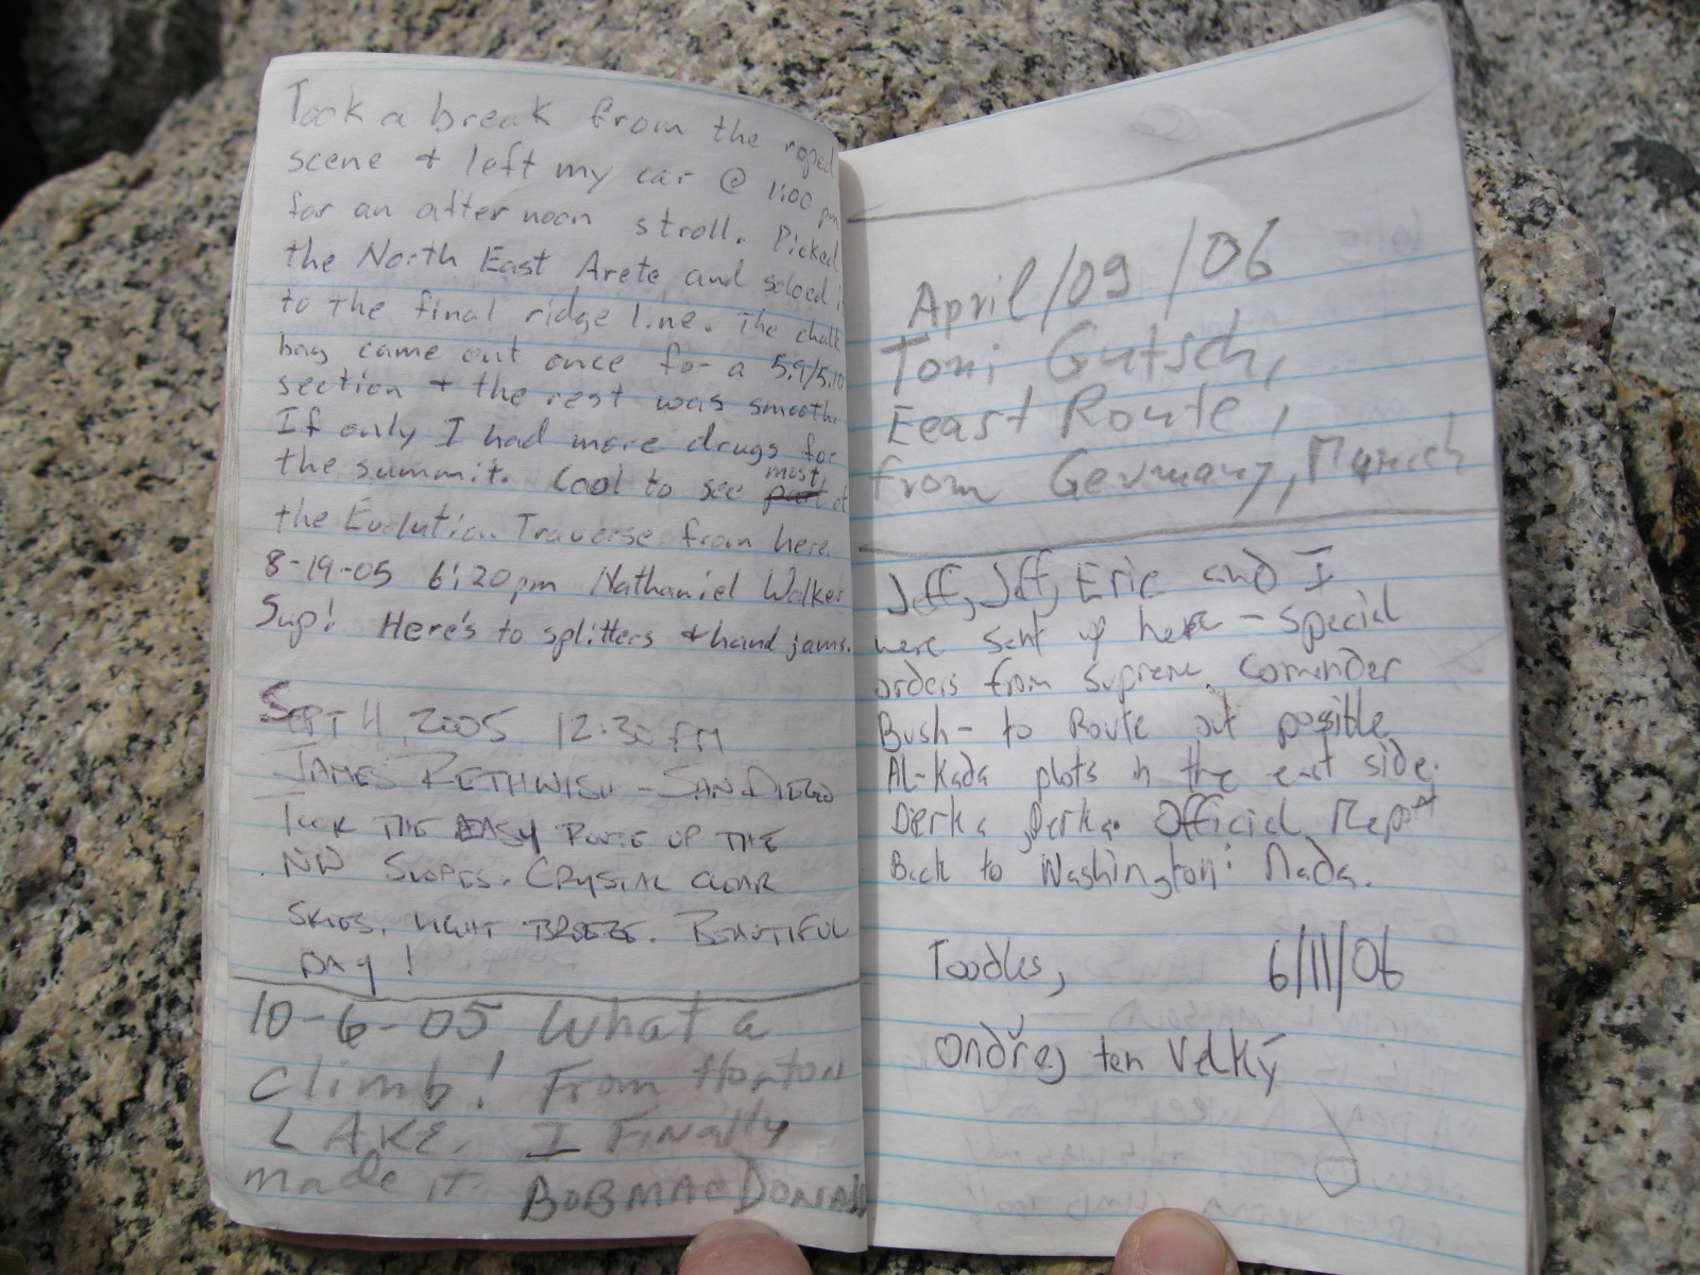 Took a break from the roped
scene + left my car @ 1:00 pm
for an afternoon stroll. Picked
the North East Arete and soloed it
to the final ridge line. The chalk
bag came out once for a 5.9/5.10
section + the rest was smooth.
If only I had more drugs for
the summit. Cool to see most of
the Evolution Traverse from here.
8-19-05 6:20pm Nathaniel Walker
Sup! Here's to splitters + hand jams.
SEPT 4, 2005 12:30 PM
JAMES RETHWISH - SAN DIEGO
TOOK THE EASY ROUTE UP THE
NW SLOPES. CRYSTAL CLEAR
SKIES, LIGHT BREEZE. BEAUTIFUL
DAY!
10-6-05 What a
climb! From Horton
LAKE. I Finally
made it. BOB MACDONALD
April/09/06
Toni Gutsch,
Eeast Route,
from Germany, Munich
Jeff, Jeff, Eric and I
were sent up here - special
orders from Supreme Comender
Bush - to Route out possible
Al-Kada plots in the east side.
Derka Derka. Official Report
Back to Washington: Nada.
Toodles, 6/11/06
Ondřej ten Velký